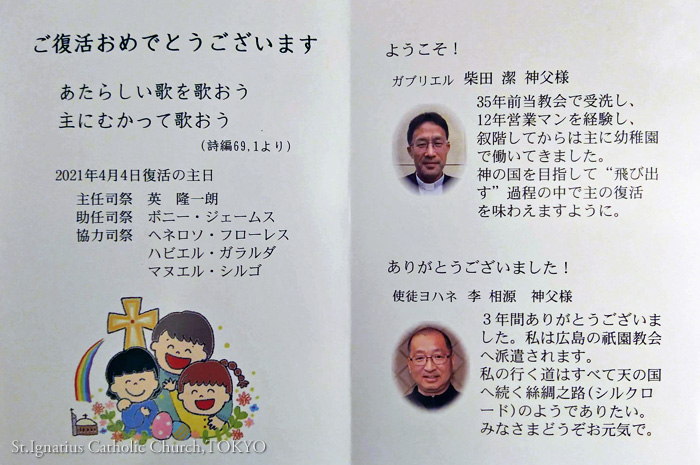 ご復活おめでとうございます
あたらしい歌を歌おう
主にむかって歌おう
(詩編69,1より)
2021年4月4日復活の主日
主任司祭 英 隆一朗
助任司祭 ボニー・ジェームス
協力司祭 ヘネロソ・フローレス
ハビエル・ガラルダ
マヌエル・シルゴ
St.Ignatius Catholic Church,TOKYO
ようこそ!
ガブリエル 柴田 潔 神父様
35年前当教会で受洗し、
12年営業マンを経験し、
叙階してからは主に幼稚園
で働いてきました。
神の国を目指して“飛び出
す”過程の中で主の復活
を味わえますように。
ありがとうございました!
使徒ヨハネ 李 相源 神父様
3年間ありがとうございま
した。私は広島の祇園教会
へ派遣されます。
私の行く道はすべて天の国
へ続く絲綢之路(シルクロ
ード)のようでありたい。
みなさまどうぞお元気で。